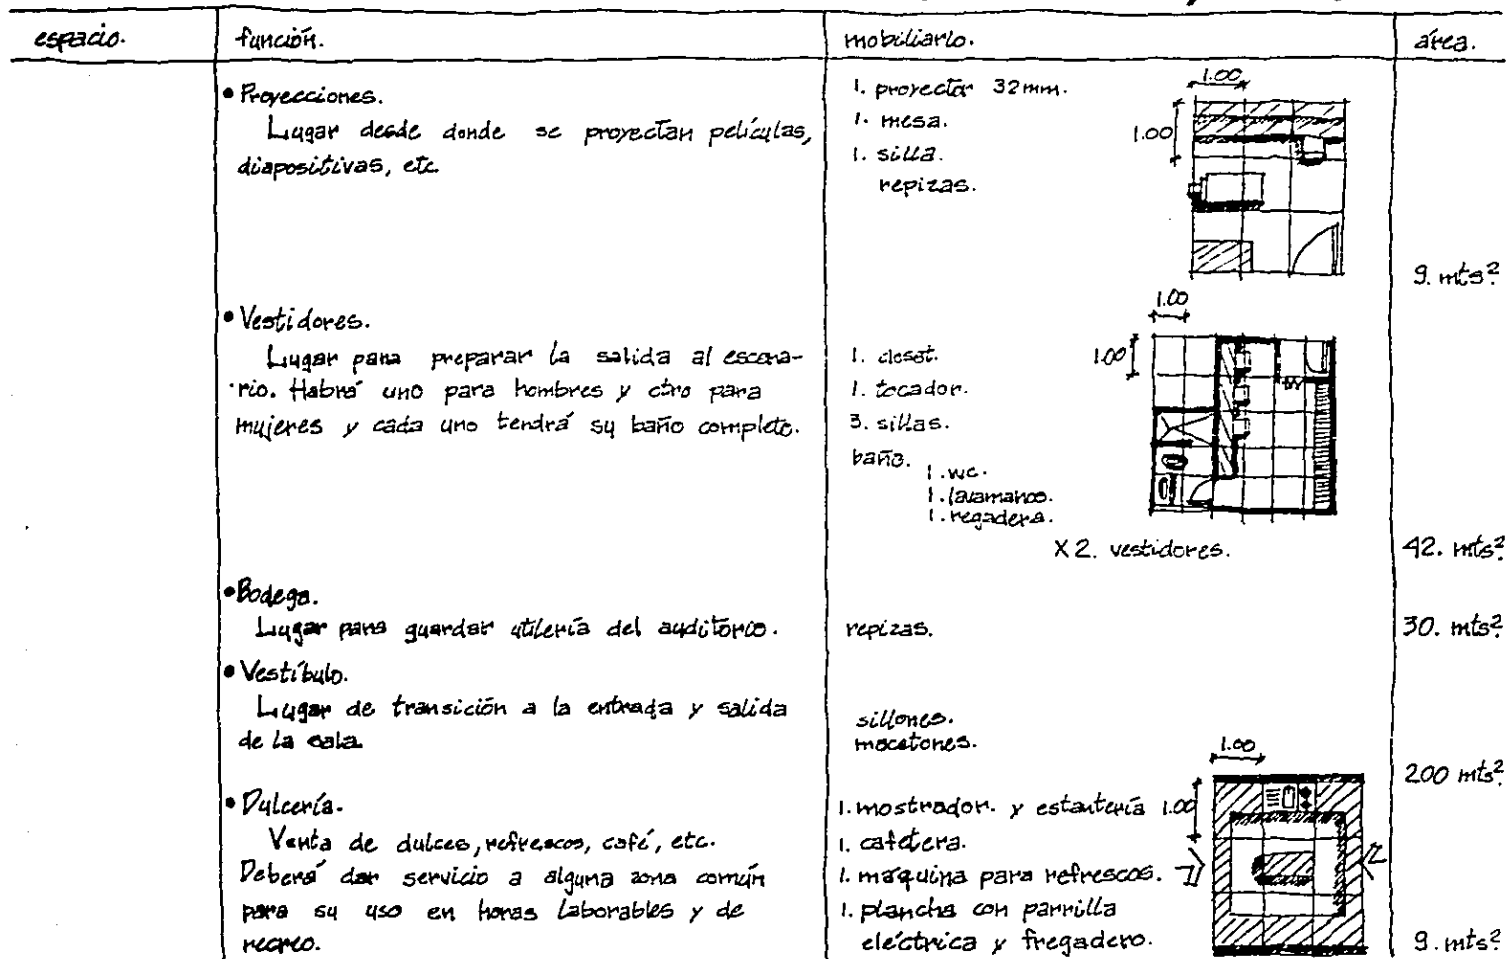 espacio. función. mobiliario. área.
• Proyecciones.
Lugar desde donde se proyectan películas,
diapositivas, etc
1. proyector 32mm.
1. mesa.
1. silla.
repizas.
1.00
1.00
9. mts².
• Vestidores.
Lugar para preparar la salida al escena-
rio. Habrá uno para hombres y otro para
mujeres y cada uno tendrá su baño completo.
1. closet.
1. tocador.
3. sillas.
baño.
1. wc.
1. lavamanos.
1. regadera.
1.00
1.00
X 2. vestidores.
42. mts².
• Bodega.
Lugar para guardar utilería del auditorio.
repizas.
30. mts².
• Vestíbulo.
Lugar de transición a la entrada y salida
de la sala.
sillones.
macetones.
200 mts².
• Dulcería.
Venta de dulces, refrescos, café, etc.
Deberá dar servicio a alguna zona común
para su uso en horas laborables y de
recreo.
1. mostrador. y estantería
1. cafetera.
1. máquina para refrescos.
1. plancha con parrilla
eléctrica y fregadero.
1.00
1.00
9. mts².